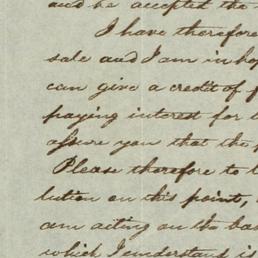 and he accepted the
I have therefore
sale and I am in ho
can give a credit of
paying interest for
assure you that the
Please therefore to
lution on this point,
am acting on the ba
which I understand is